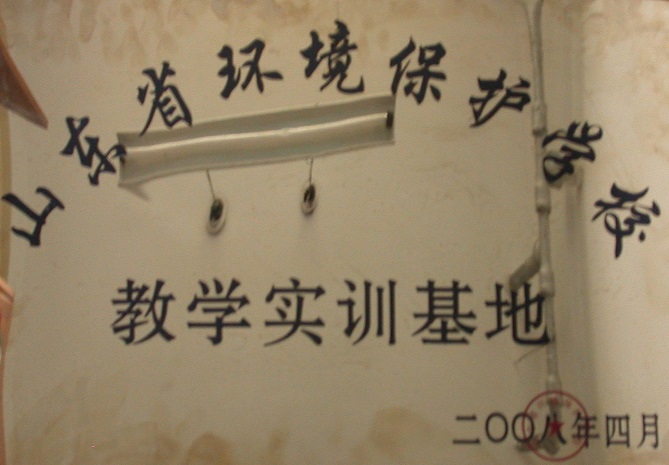 山东省环境保护学校
教学实训基地
二〇〇八年四月